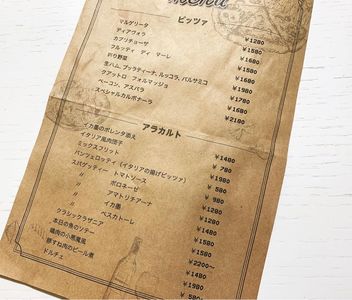 Menu
ピッツァ
マルゲリータ ¥1280
ディアヴォラ ¥1580
カプリチョーザ ¥1680
フルッティ ディ マーレ ¥1580
彩り野菜 ¥1680
生ハム、ブッラティーナ、ルッコラ、バルサミコ ¥1980
クアットロ フォルマッジョ ¥1780
ベーコン、アスパラ ¥1680
スペシャルカルボナーラ ¥2180
アラカルト
イカ墨のポレンタ添え ¥1480
イタリア風肉団子 ¥ 780
ミックスフリット ¥1980
パンツェロッティ(イタリアの揚げピッツァ) ¥ 580
スパゲッティー トマトソース ¥ 980
〃 ボロネーゼ ¥1280
〃 アマトリチアーナ ¥1280
〃 イカ墨 ¥1480
〃 ペスカトーレ ¥1580
クラシックラザニア ¥1580
本日の魚のソテー ¥2200〜
鶏肉の小悪魔風 ¥1480
豚すね肉のビール煮 ¥1980
ドルチェ ¥ 580